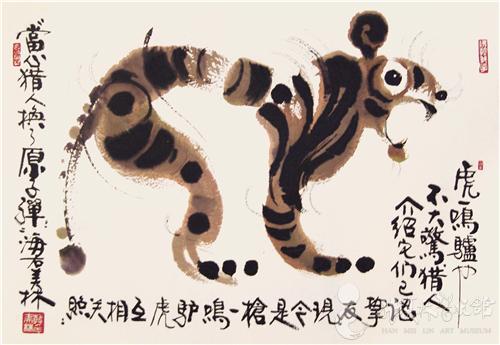 虎鳴驢也
不大驚獵人
介紹它們已
摯友現今是槍一鳴驴虎互相关照
當心猎人換了原子彈 美林
韩美林艺术馆
HAN MEI LIN ART MUSEUM